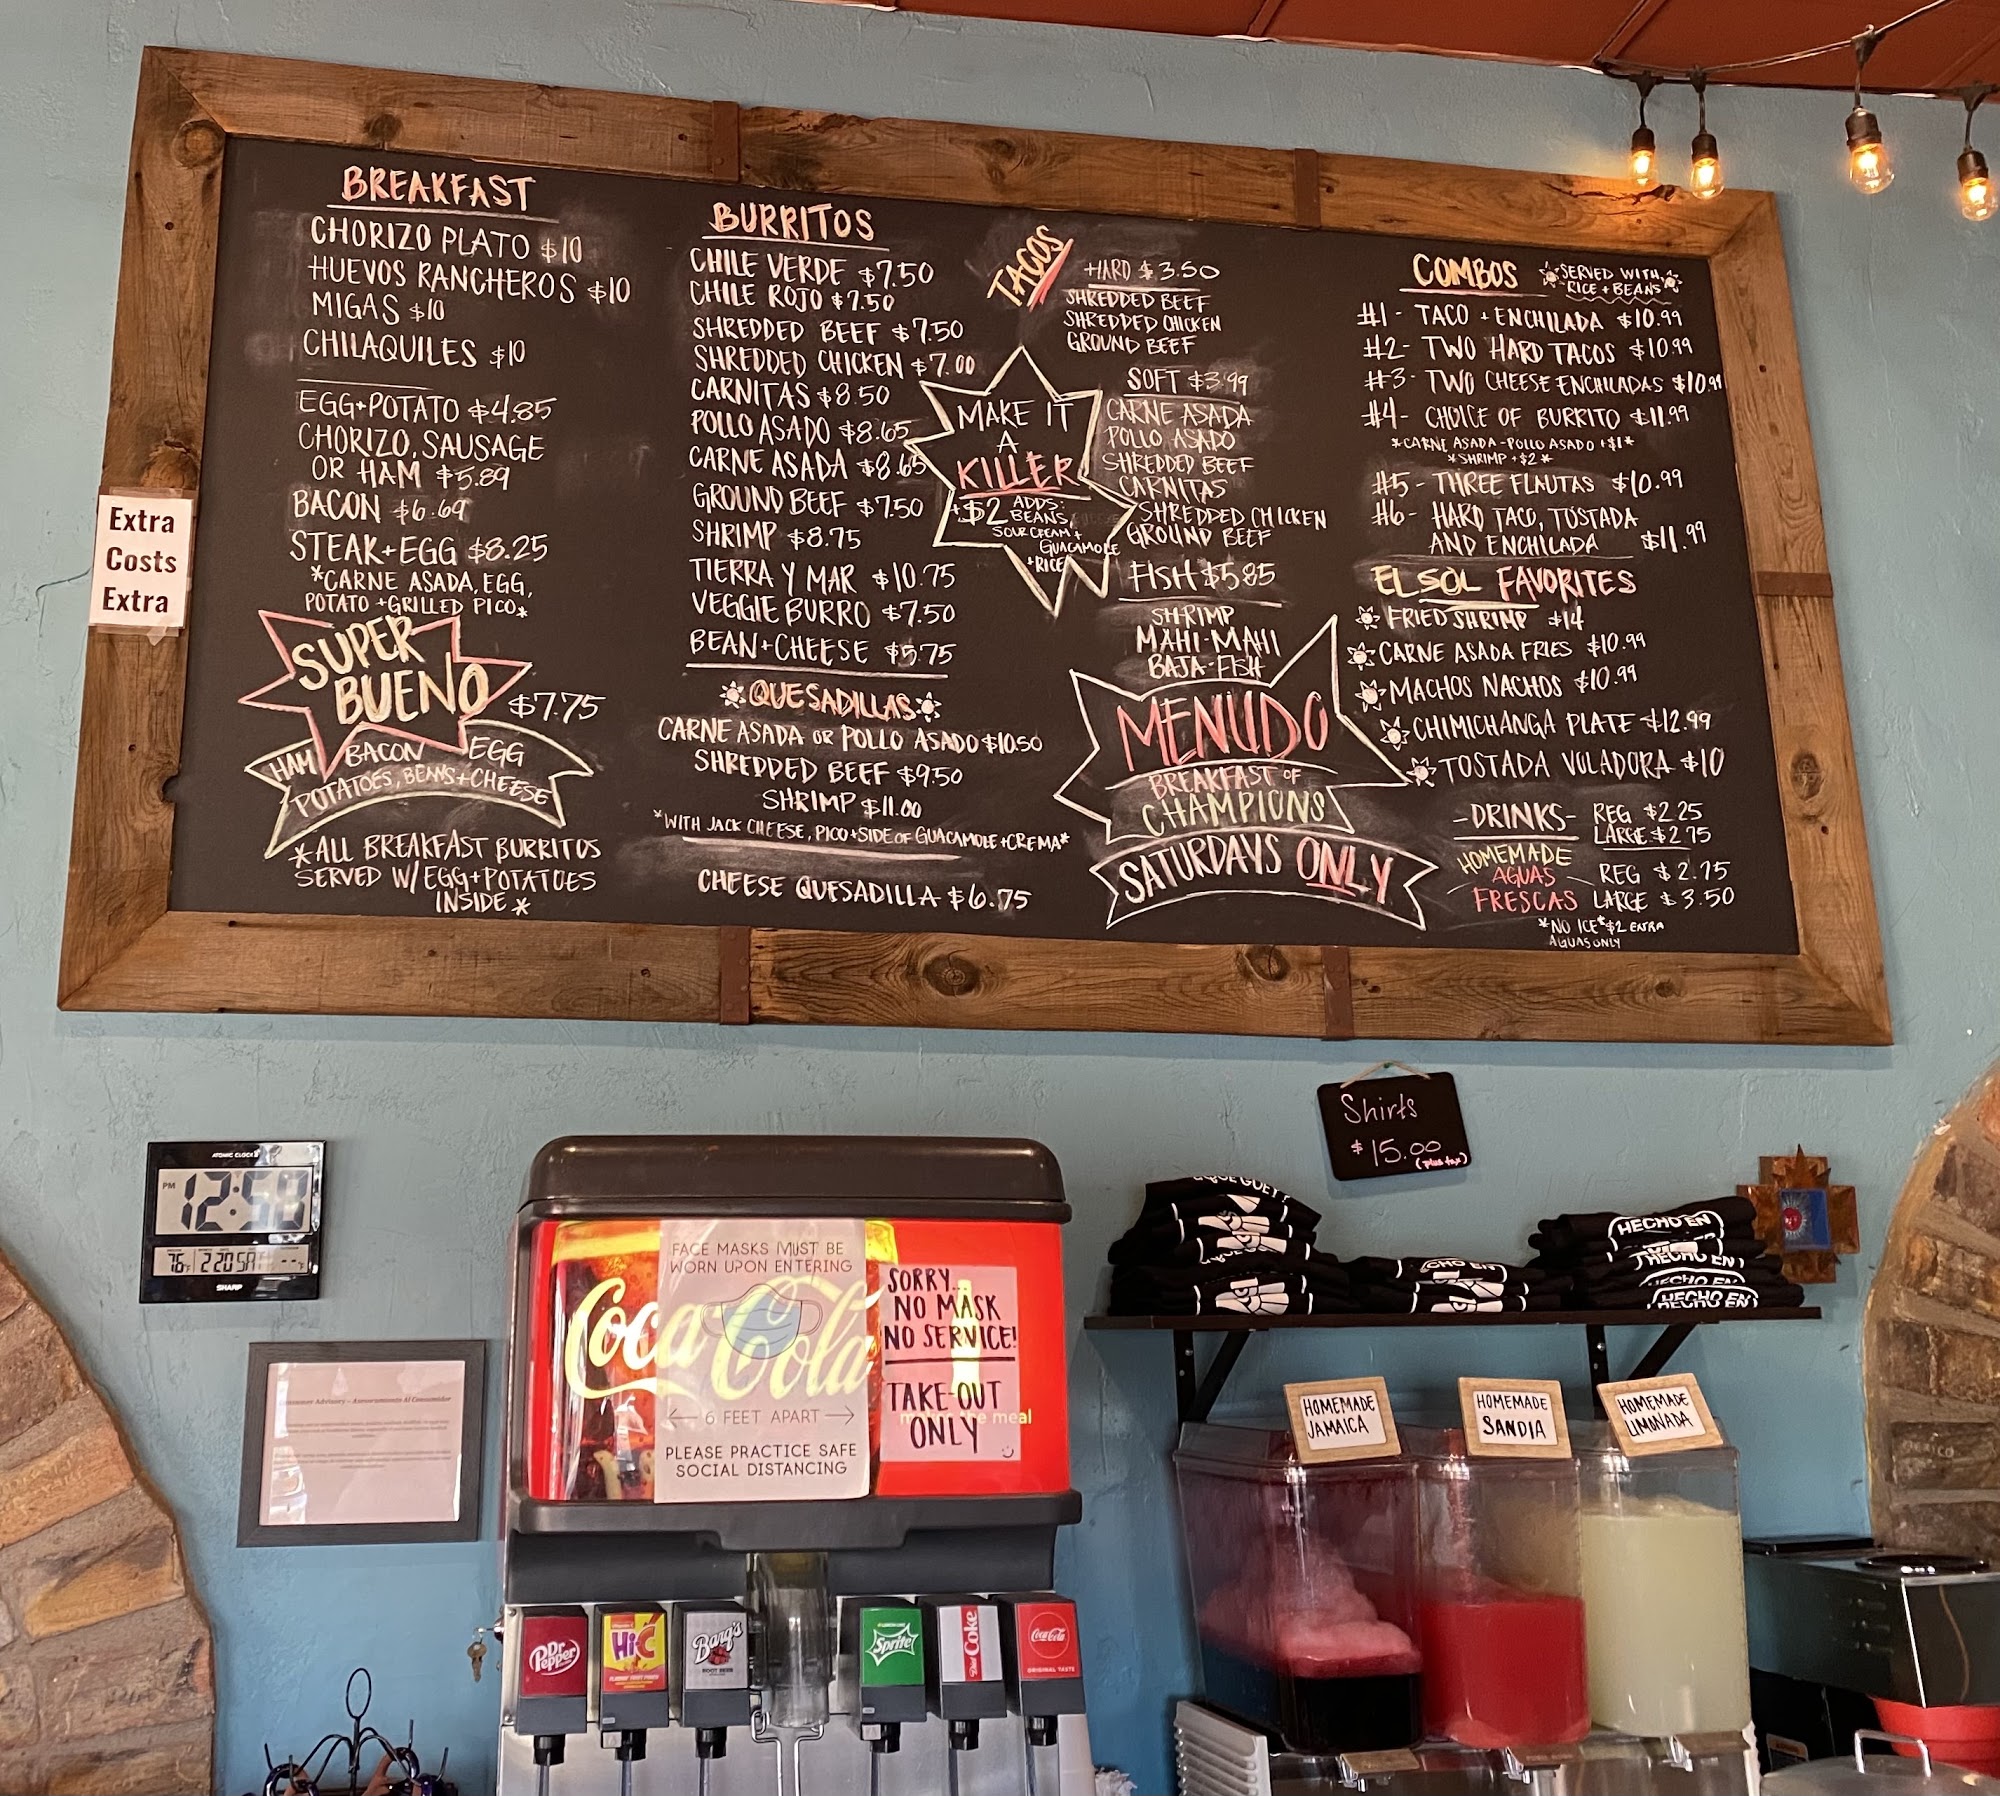 BREAKFAST
CHORIZO PLATO $10
HUEVOS RANCHEROS $10
MIGAS $10
CHILAQUILES $10
EGG+POTATO $4.85
CHORIZO, SAUSAGE
OR HAM $5.89
BACON $6.69
STEAK+EGG $8.25
*CARNE ASADA, EGG,
POTATO +GRILLED PICO*
SUPER
BUENO $7.75
HAM BACON EGG
POTATOES, BEANS+CHEESE
*ALL BREAKFAST BURRITOS
SERVED W/ EGG+POTATOES
INSIDE*
BURRITOS
CHILE VERDE $7.50
CHILE ROJO $7.50
SHREDDED BEEF $7.50
SHREDDED CHICKEN $7.00
CARNITAS $8.50
POLLO ASADO $8.65
CARNE ASADA $8.65
GROUND BEEF $7.50
SHRIMP $8.75
TIERRA Y MAR $10.75
VEGGIE BURRO $7.50
BEAN+CHEESE $5.75
QUESADILLAS
CARNE ASADA OR POLLO ASADO $10.50
SHREDDED BEEF $9.50
SHRIMP $11.00
*WITH JACK CHEESE, PICO+SIDE OF GUACAMOLE+CREMA*
CHEESE QUESADILLA $6.75
TACOS
HARD $3.50
SHREDDED BEEF
SHREDDED CHICKEN
GROUND BEEF
SOFT $3.99
CARNE ASADA
POLLO ASADO
SHREDDED BEEF
CARNITAS
SHREDDED CHICKEN
GROUND BEEF
FISH $5.85
SHRIMP
MAHI-MAHI
BAJA-FISH
MAKE IT
A
KILLER
+$2 ADDS:
BEANS,
SOUR CREAM+
GUACAMOLE
+RICE
MENUDO
BREAKFAST OF
CHAMPIONS
SATURDAYS ONLY
COMBOS
SERVED WITH
RICE + BEANS
#1- TACO + ENCHILADA $10.99
#2- TWO HARD TACOS $10.99
#3- TWO CHEESE ENCHILADAS $10.99
#4- CHOICE OF BURRITO $11.99
*CARNE ASADA-POLLO ASADO +$1*
*SHRIMP +$2*
#5- THREE FLAUTAS $10.99
#6- HARD TACO, TOSTADA
AND ENCHILADA $11.99
EL SOL FAVORITES
FRIED SHRIMP $14
CARNE ASADA FRIES $10.99
MACHOS NACHOS $10.99
CHIMICHANGA PLATE $12.99
TOSTADA VOLADORA $10
-DRINKS- REG $2.25
LARGE $2.75
HOMEMADE
AGUAS
FRESCAS
REG $2.75
LARGE $3.50
*NO ICE* $2 EXTRA
AGUAS ONLY
Extra
Costs
Extra
Shirts
$15.00
(plus tax)
ATOMIC CLOCK
PM 12:58
76 2 20 SA
SHARP
Consumer Advisory - Asesoramiento Al Consumidor
Coca-Cola
FACE MASKS MUST BE
WORN UPON ENTERING
6 FEET APART
PLEASE PRACTICE SAFE
SOCIAL DISTANCING
SORRY...
NO MASK
NO SERVICE!
TAKE-OUT
ONLY
the meal
HECHO EN
HECHO EN
HECHO EN
HECHO EN
HOMEMADE
JAMAICA
HOMEMADE
SANDIA
HOMEMADE
LIMONADA
Dr Pepper
Hi-C
Barq's
ROOT BEER
Sprite
Diet Coke
Coca-Cola
ORIGINAL TASTE